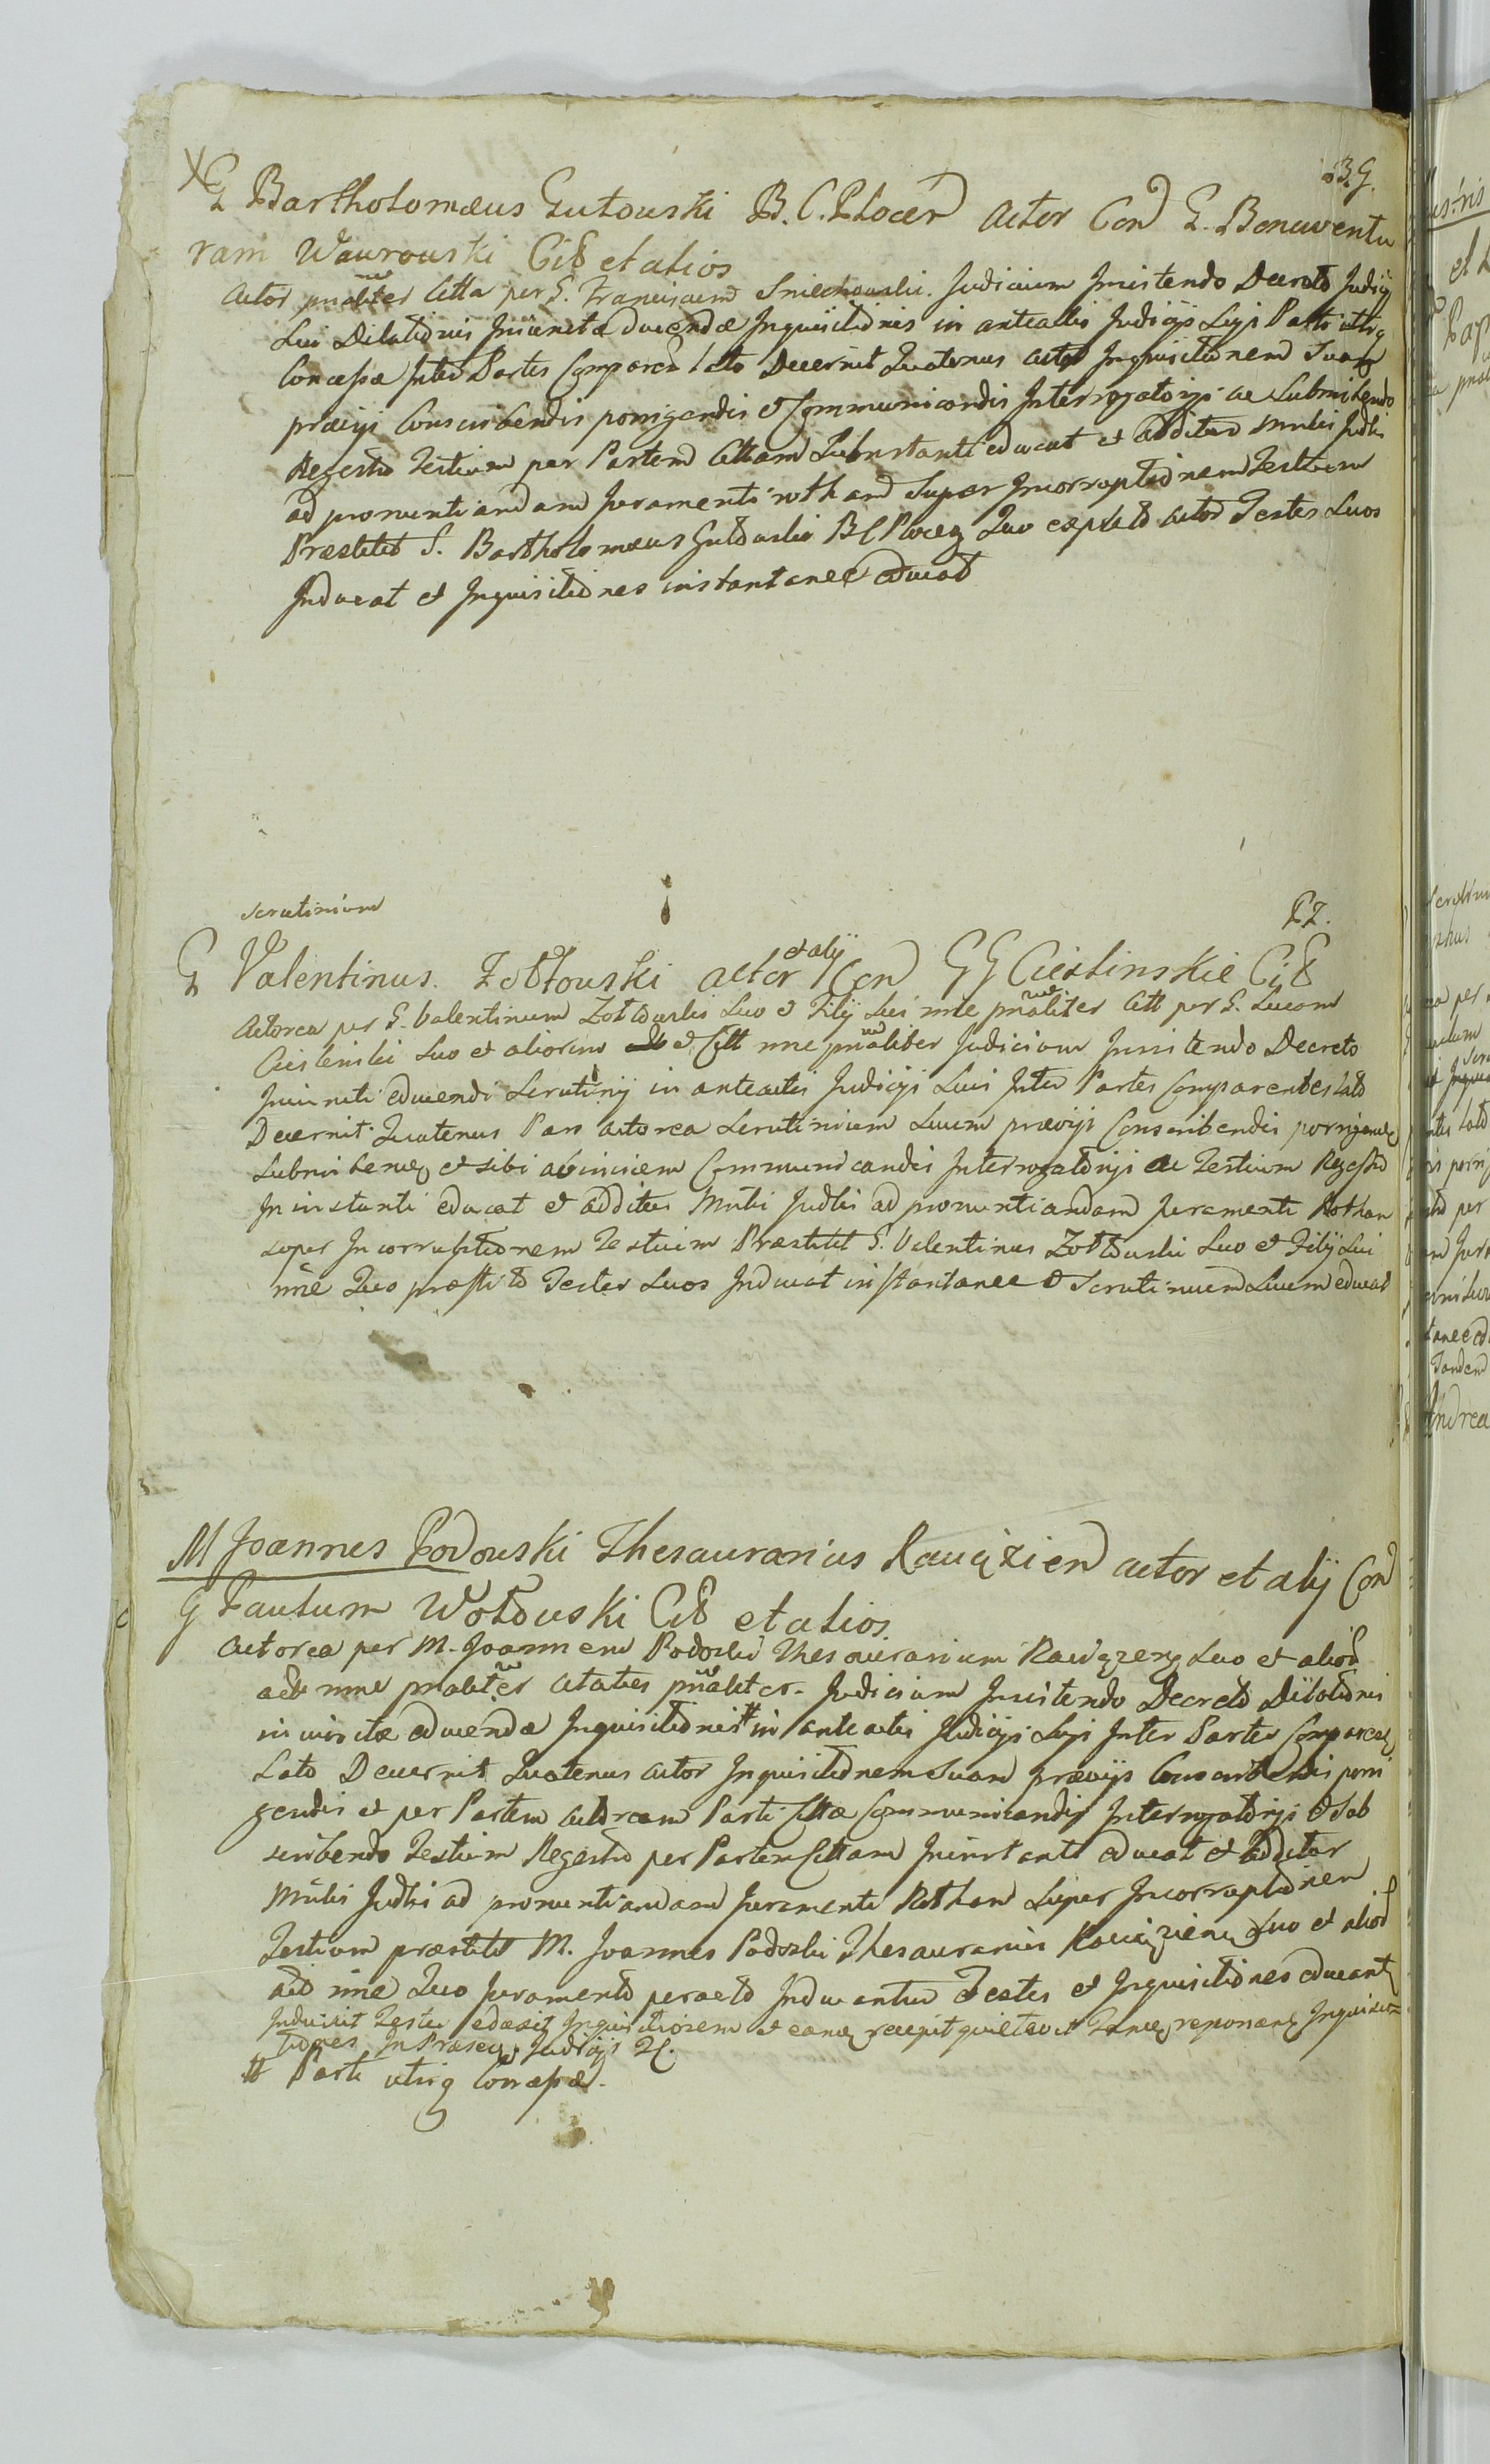 B.G.
X G Bartholomæus Gutouski B. C. Plocen Actor Con G. Bonaventu
ram Waurouski Citt et alios
Actor pnaliter Citta per G. Franciscum Smiechouski. Judicium Insistendo Decreto Judicij
Sui Dilationis Iniunctæ ducendæ Inquisitionis in anteactis Judicijs Suis Parti utriq
Concessæ Inter Partes Comparen Lato Decernit Quatenus Actor Inquisitionem Suam
prævijs Conscribendis porrigendis et Communicandis Interrogatorijs ac Submittendo
Regestro Testium per Partem Cittam Subinstanti educat et additur Mnlis Judlis
ad pronuntiandam Juramenti rotham Super Incorruptionem Testium
Præstitit G. Bartholomæus Gutouski B C Plocen Quo expleto Actor Testes Suos
Inducat et Inquisitiones instantanee educat
Scrutinium
G Valentinus Zołtouski Actor et alij Con GG Cieslinskie Citt
Actorea per G. Valentinum Zołtouski Suo et Filij Sui nne pnaliter Citt per G. Lucam
Cieslinski Suo et aliorum et Citt nne pnaliter Judicium Insistendo Decreto
Iniuncti educendi Scrutinij in anteactis Judicijs Suis Inter Partes Comparentes Lato
Decernit. Quatenus Pars Actorea Scrutinium Suum prævijs Conscribendis porrigend
Submittend et sibi abinvicem Communicandis Interrogatorijs ac Testium Regestro
In instanti educat et additur Mnlis Judlis ad pronuntiandam Juramenti Rotham
super Incorruptionem Testium Præstitit G. Valentinus Zołtouski Suo et Filij Sui
nne Quo præstito Testes Suos Inducat instantanee et Scrutinium Suum educat
M Joannes Podouski Thesaurarius Rawæzien Actor et alij Con
G Paulum Wołouski Citt et alios
Actorea per M. Joannem Podoski Thesaurarium Rawæzen Suo et aliod
nne pnaliter Citatus pnaliter. Judicium Insistendo Decreto Dilationis
iniunctæ educendæ Inquisitionis # in anteactis Judicijs Suis Inter Partes Comparen
Lato Decernit Quatenus Actor Inquisitionem Suam prævijs Conscribendis porri
gendis et per Partem Actoream Parti Cittæ Communicandis Interrogatorijs et Sub
scribendo Testium Regestro per Partem Cittam Ininstanti educat et additur
Mnlis Judlis ad pronuntiandam Juramenti Rotham Super Incorruptionem
Testium præstitit M. Joannes Podoski Thesaurarius Rawæzien Suo et aliod
nne Quo Juramento peracto Inducantur Testes et Inquisitiones educant
Induxit Testes eduxit Inquisitionem et eam recepit
tiones In Præsen Judicijs
# Parti utriq Concessæ.